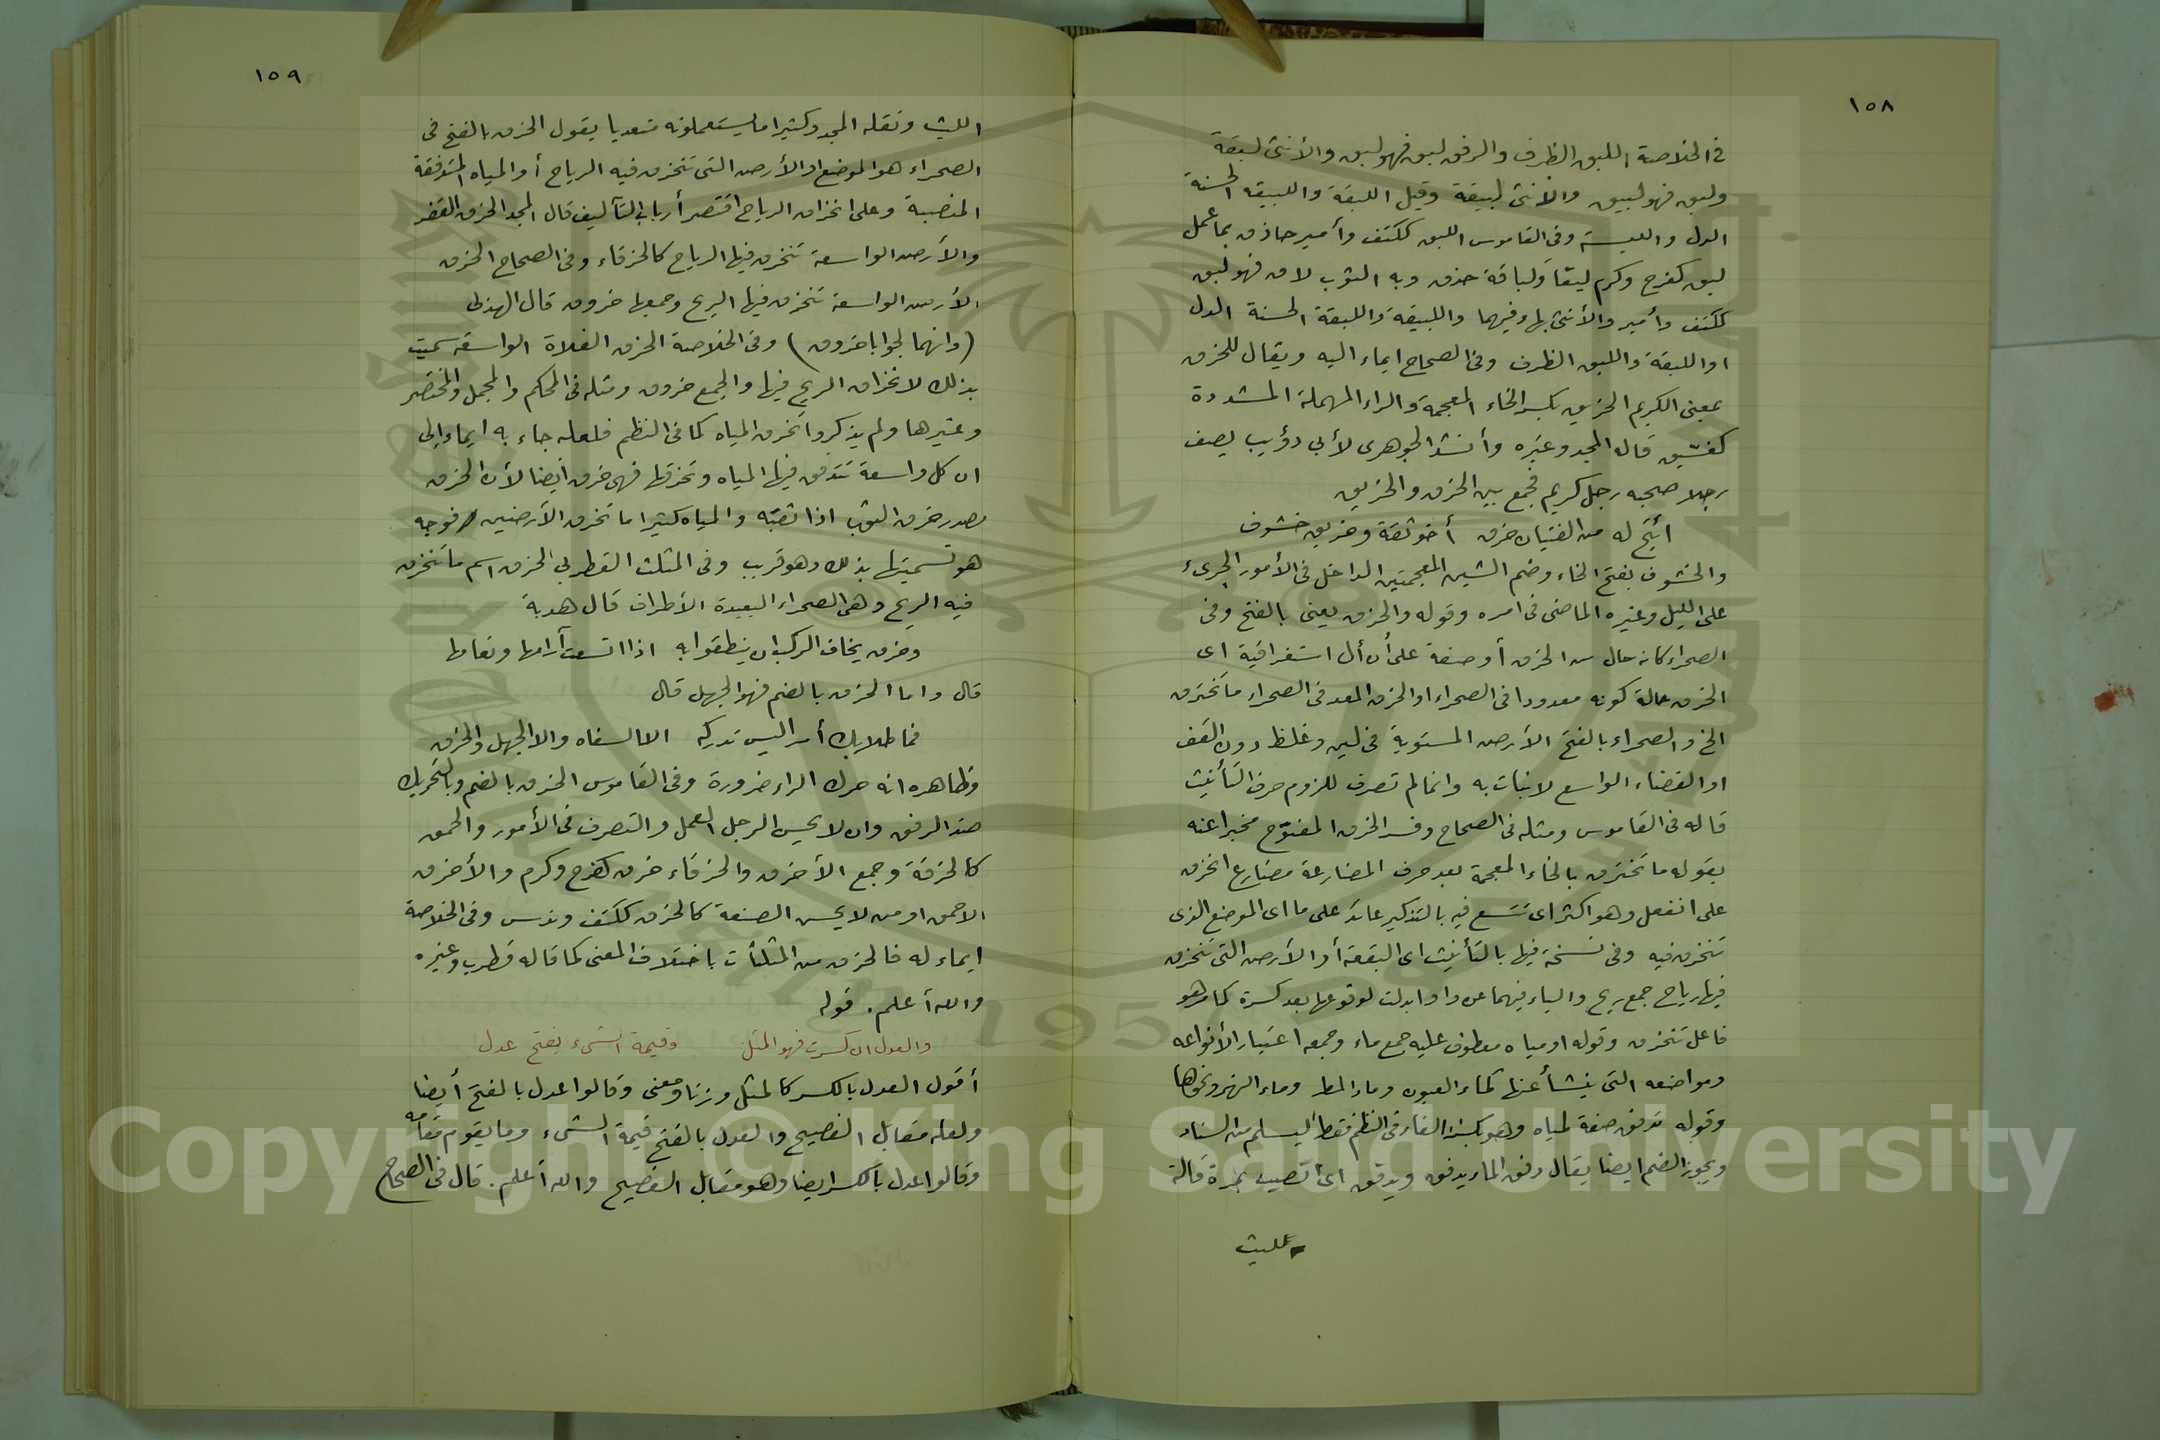 ١٥٨
في الخلاصة اللبق الظرف والرفق لبق فهو لبق والأنثى لبقة
ولبق فهو لبيق والأنثى لبيقة وقيل اللبقة واللبيقة الحسنة
الدل واللبسة وفي القاموس اللبق ككتف وأمير حاذق بما عمل
لبق كفرح وكرم لبقا ولباقة حذق وبه الثوب لاق فهو لبق
ككتف وأمير والأنثى بهاء فيهما واللبيقة واللبقة الحسنة الدل
او اللبقة واللبق الظرف وفي الصحاح ايماء اليه ويقال للخرق
بمعنى الكريم الخريق بكسر الخاء المعجمة والراء المهملة المشددة
كفسّيق قاله المجد وغيره وأنشد الجوهرى لأبي ذؤيب يصف
رجلا صحبه رجل كريم فجمع بين الخرق والخريق
أتيح له من الفتيان خرق أخو ثقة وخريق خشوف
والخشوف بفتح الخاء وضم الشين المعجمتين الداخل في الأمور الجرىء
على الليل وغيره الماضي في امره وقوله والخرق يعني بالفتح وفي
الصحراء كانه حال من الخرق أو صفة على أن أل استغراقية اى
الخرق حالة كونه معدودا في الصحراء او الخرق المعد في الصحراء ما تخترق
الخ والصحراء بالفتح الأرض المستوية في لين وغلظ دون القف
او الفضاء الواسع لا نبات به وانما لم تصرف للزوم حرف التأنيث
قاله في القاموس ومثله في الصحاح وفسر الخرق المفتوح مخبرا عنه
بقوله ما تخترق بالخاء المعجمة بعد حرف المضارعة مضارع انخرق
على انفعل وهو اكثر اى تتسع فيه بالتذكير عائد على ما اى الموضع الذى
تنخرق فيه وفي نسخة فيها بالتأنيث اى البقعة أو الأرض التى تنخرق
فيها رياح جمع ريح والياء فيهما عن واو ابدلت لوقوعها بعد كسرة كما مر وهو
فاعل تنخرق وقوله او مياه معطوف عليه جمع ماء وجمعه اعتبار الأنواعه
ومواضعه التى ينشأ عنها كماء العيون وماء المطر وماء النهر ونحوها
وقوله تدفق صفة لمياه وهو بكسر الفاء في النظم فقط ليسلم من السناد
ويجوز الضم ايضا يقال دفق الماء يدفق ويدفق اى تصبب بمرة قاله
الليث
١٥٩
الليث ونقله المجد وكثيرا ما يستعملونه متعديا يقول الخرق بالفتح في
الصحراء هو الموضع او الأرض التى تنخرق فيه الرياح أو المياه المتدفقة
المنصبة وعلى انخراق الرياح اقتصر أرباب التآليف قال المجد الخرق القفر
والأرض الواسعة تنخرق فيها الرياح كالخرقاء وفي الصحاح الخرق
الأرض الواسعة تنخرق فيها الريح وجمعها خروق قال الهذلى
(وانهما لجوابا خروق) وفي الخلاصة الخرق الفلاة الواسعة سميت
بذلك لانخراق الريح فيها والجمع خروق ومثله في المحكم والمجمل والمختصر
وغيرها ولم يذكروا تخرق المياه كما في النظم فلعله جاء به ايماء إلى
ان كل واسعة تتدفق فيها المياه وتخرقها فهى خرق أيضا لأن الخرق
مصدر خرق الثوب اذا ثقبه والمياه كثيرا ما تخرق الأرضين فوجه
هو تسميتها بذلك وهو قريب وفي المثلث القطربي الخرق اسم ما تنخرق
فيه الريح وهى الصحراء البعيدة الأطراف قال هدبة
وخرق يخاف الركب ان ينطقوا به اذا اتسعت آرامها ونعامها
قال واما الخرق بالضم فهو الجهل قال
فما طلابك أمرا ليس تدركه الا السفاه والا الجهل والخرق
وظاهره انه حرك الراء ضرورة وفي القاموس الخرق بالضم وبالتحريك
ضد الرفق وان لا يحسن الرجل العمل والتصرف في الأمور والحمق
كالخرقة وجمع الأخرق والخرقاء خرق كفرح وكرم والأخرق
الاحمق او من لا يحسن الصنعة كالخرق ككتف وندس وفي الخلاصة
ايماء له فالخرق من المثلثات باختلاف المعنى كما قاله قطرب وغيره
والله أعلم. قوله
والعدل ان كسرت فهو المثل وقيمة الشىء بفتح عدل
أقول العدل بالكسر كالمثل وزنا ومعنى وقالوا عدل بالفتح أيضا
ولعله مقابل الفصيح والعدل بالفتح قيمة الشىء وما يقوم مقامه
وقالوا عدل بالكسر ايضا وهو مقابل الفصيح والله أعلم. قال في الصحاح
Copyright © King Saud University
1957